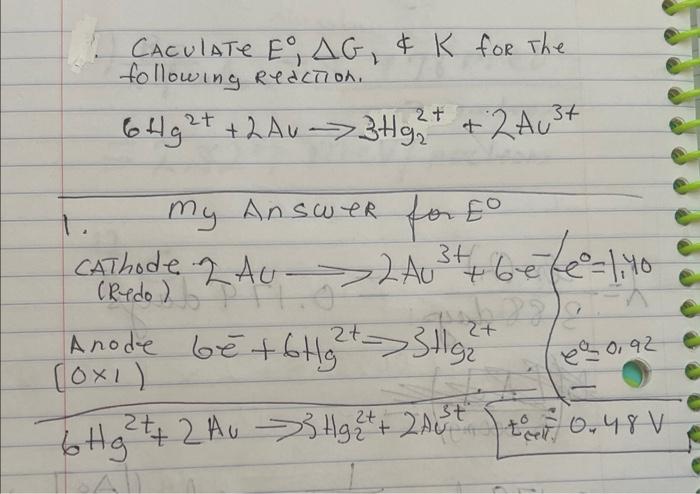 CACulATe E°, ΔG, & K for The
following Reaction.
6Hg²⁺ + 2Au → 3Hg₂²⁺ + 2Au³⁺
1. My Answer for E°
CAThode 2Au → 2Au³⁺ + 6e⁻ e°=1.40
(Redo)
Anode 6e⁻ + 6Hg²⁺ → 3Hg₂²⁺ e°=0.92
(OXI)
6Hg²⁺ + 2Au → 3Hg₂²⁺ + 2Au³⁺ E°cell = 0.48 V